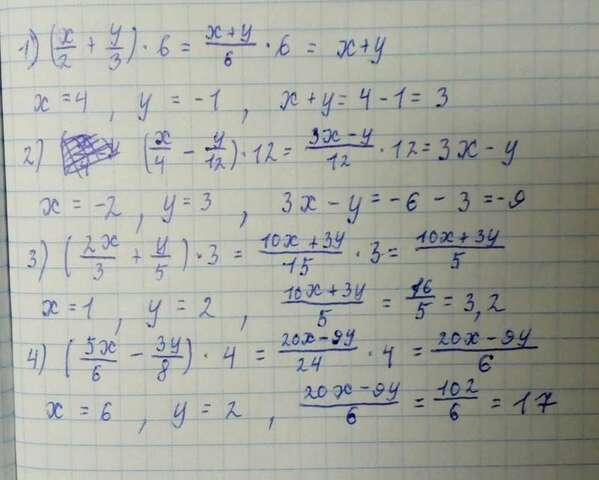 1) (x/2 + y/3) · 6 = (x+y)/6 · 6 = x+y
x = 4 , y = -1 , x+y = 4 - 1 = 3
2) (x/4 - y/12) · 12 = (3x-y)/12 · 12 = 3x - y
x = -2 , y = 3 , 3x - y = -6 - 3 = -9
3) (2x/3 + y/5) · 3 = (10x+3y)/15 · 3 = (10x+3y)/5
x = 1 , y = 2 , (10x+3y)/5 = 16/5 = 3,2
4) (5x/6 - 3y/8) · 4 = (20x-9y)/24 · 4 = (20x-9y)/6
x = 6 , y = 2 , (20x-9y)/6 = 102/6 = 17